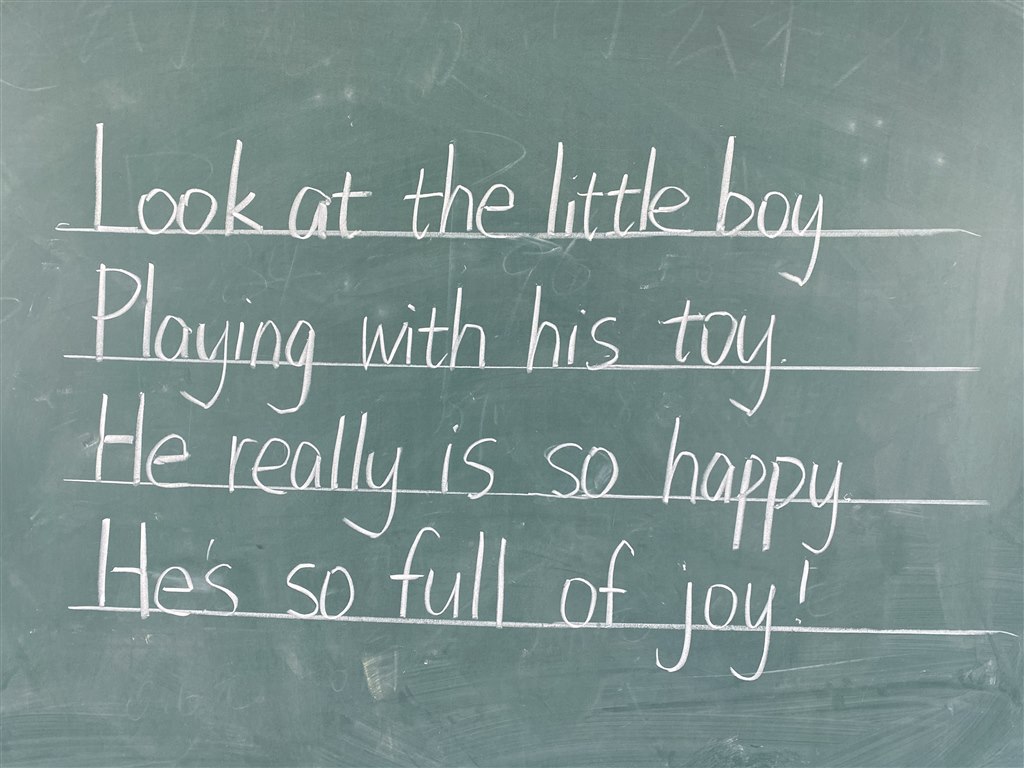 Look at the little boy
Playing with his toy.
He really is so happy
He's so full of joy!